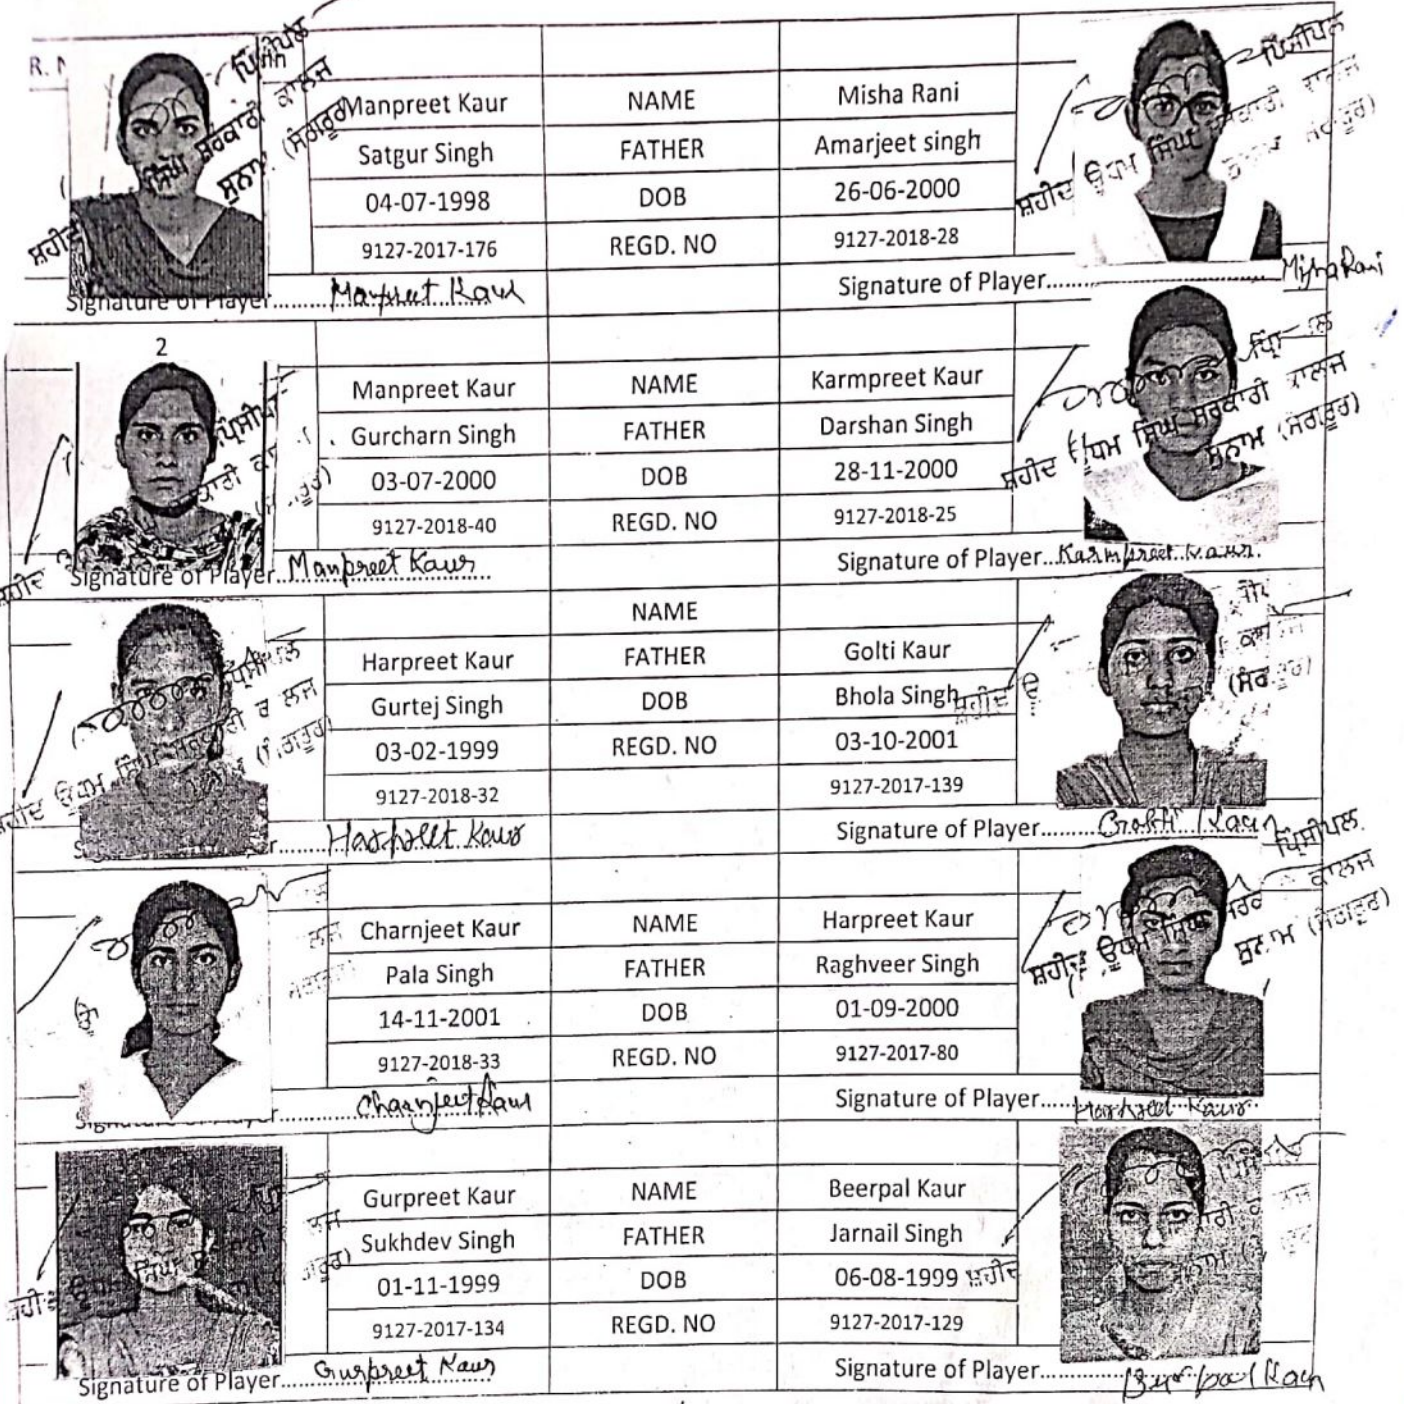 Manpreet Kaur NAME Misha Rani
Satgur Singh FATHER Amarjeet singh
04-07-1998 DOB 26-06-2000
9127-2017-176 REGD. NO 9127-2018-28
Signature of Player Manpreet Kaur Signature of Player Misha Rani
ਪ੍ਰਿੰਸੀਪਲ
ਸ਼ਹੀਦ ਊਧਮ ਸਿੰਘ ਸਰਕਾਰੀ ਕਾਲਜ
ਸੁਨਾਮ (ਸੰਗਰੂਰ)
2
Manpreet Kaur NAME Karmpreet Kaur
Gurcharn Singh FATHER Darshan Singh
03-07-2000 DOB 28-11-2000
9127-2018-40 REGD. NO 9127-2018-25
Signature of Player Manpreet Kaur Signature of Player Karmpreet Kaur
ਸ਼ਹੀਦ ਊਧਮ ਸਿੰਘ ਸਰਕਾਰੀ ਕਾਲਜ
ਸੁਨਾਮ (ਸੰਗਰੂਰ)
NAME
Harpreet Kaur FATHER Golti Kaur
Gurtej Singh DOB Bhola Singh
03-02-1999 REGD. NO 03-10-2001
9127-2018-32 9127-2017-139
Harpreet Kaur Signature of Player Golti Kaur
Charnjeet Kaur NAME Harpreet Kaur
Pala Singh FATHER Raghveer Singh
14-11-2001 DOB 01-09-2000
9127-2018-33 REGD. NO 9127-2017-80
Signature of Player Charnjeet Kaur Signature of Player Harpreet Kaur
ਪ੍ਰਿੰਸੀਪਲ
ਸ਼ਹੀਦ ਊਧਮ ਸਿੰਘ ਕਾਲਜ
ਸੁਨਾਮ (ਸੰਗਰੂਰ)
Gurpreet Kaur NAME Beerpal Kaur
Sukhdev Singh FATHER Jarnail Singh
01-11-1999 DOB 06-08-1999
9127-2017-134 REGD. NO 9127-2017-129
Signature of Player Gurpreet Kaur Signature of Player Beerpal Kaur